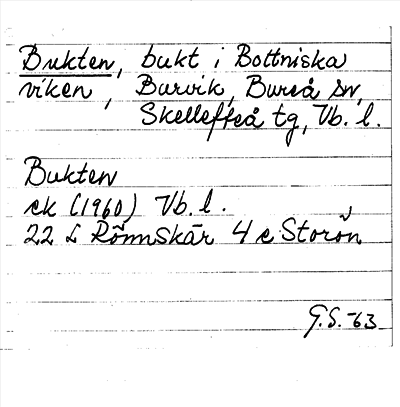 Bukten, bukt i Bottniska
viken, Burvik, Bureå sn,
Skellefteå tg, Vb. l.
Bukten
ek (1960) Vb. l.
22 L Rönnskär 4 c Storön
G.S. -63